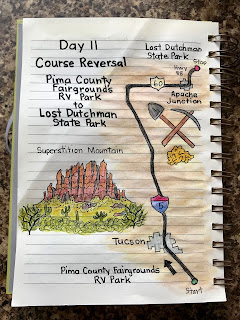 Day 11
Course Reversal
Pima County
Fairgrounds
RV Park
to
Lost Dutchman
State Park
Superstition Mountain
Lost Dutchman
State Park
Stop
Hwy
88
60
Apache
Junction
5
Tucson
Pima County Fairgrounds
RV Park
Start